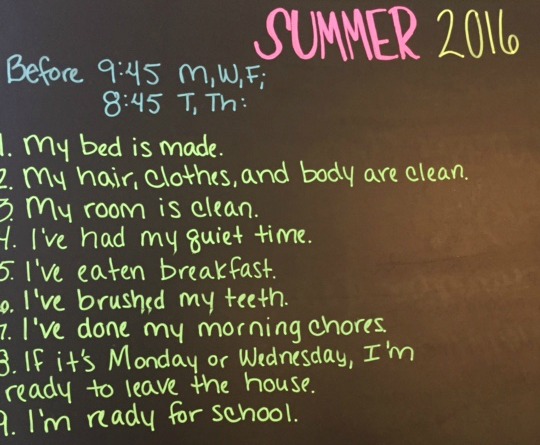 SUMMER 2016
Before 9:45 M,W,F;
8:45 T, Th:
1. My bed is made.
2. My hair, clothes, and body are clean.
3. My room is clean.
4. I've had my quiet time.
5. I've eaten breakfast.
6. I've brushed my teeth.
7. I've done my morning chores.
8. If it's Monday or Wednesday, I'm
ready to leave the house.
9. I'm ready for school.